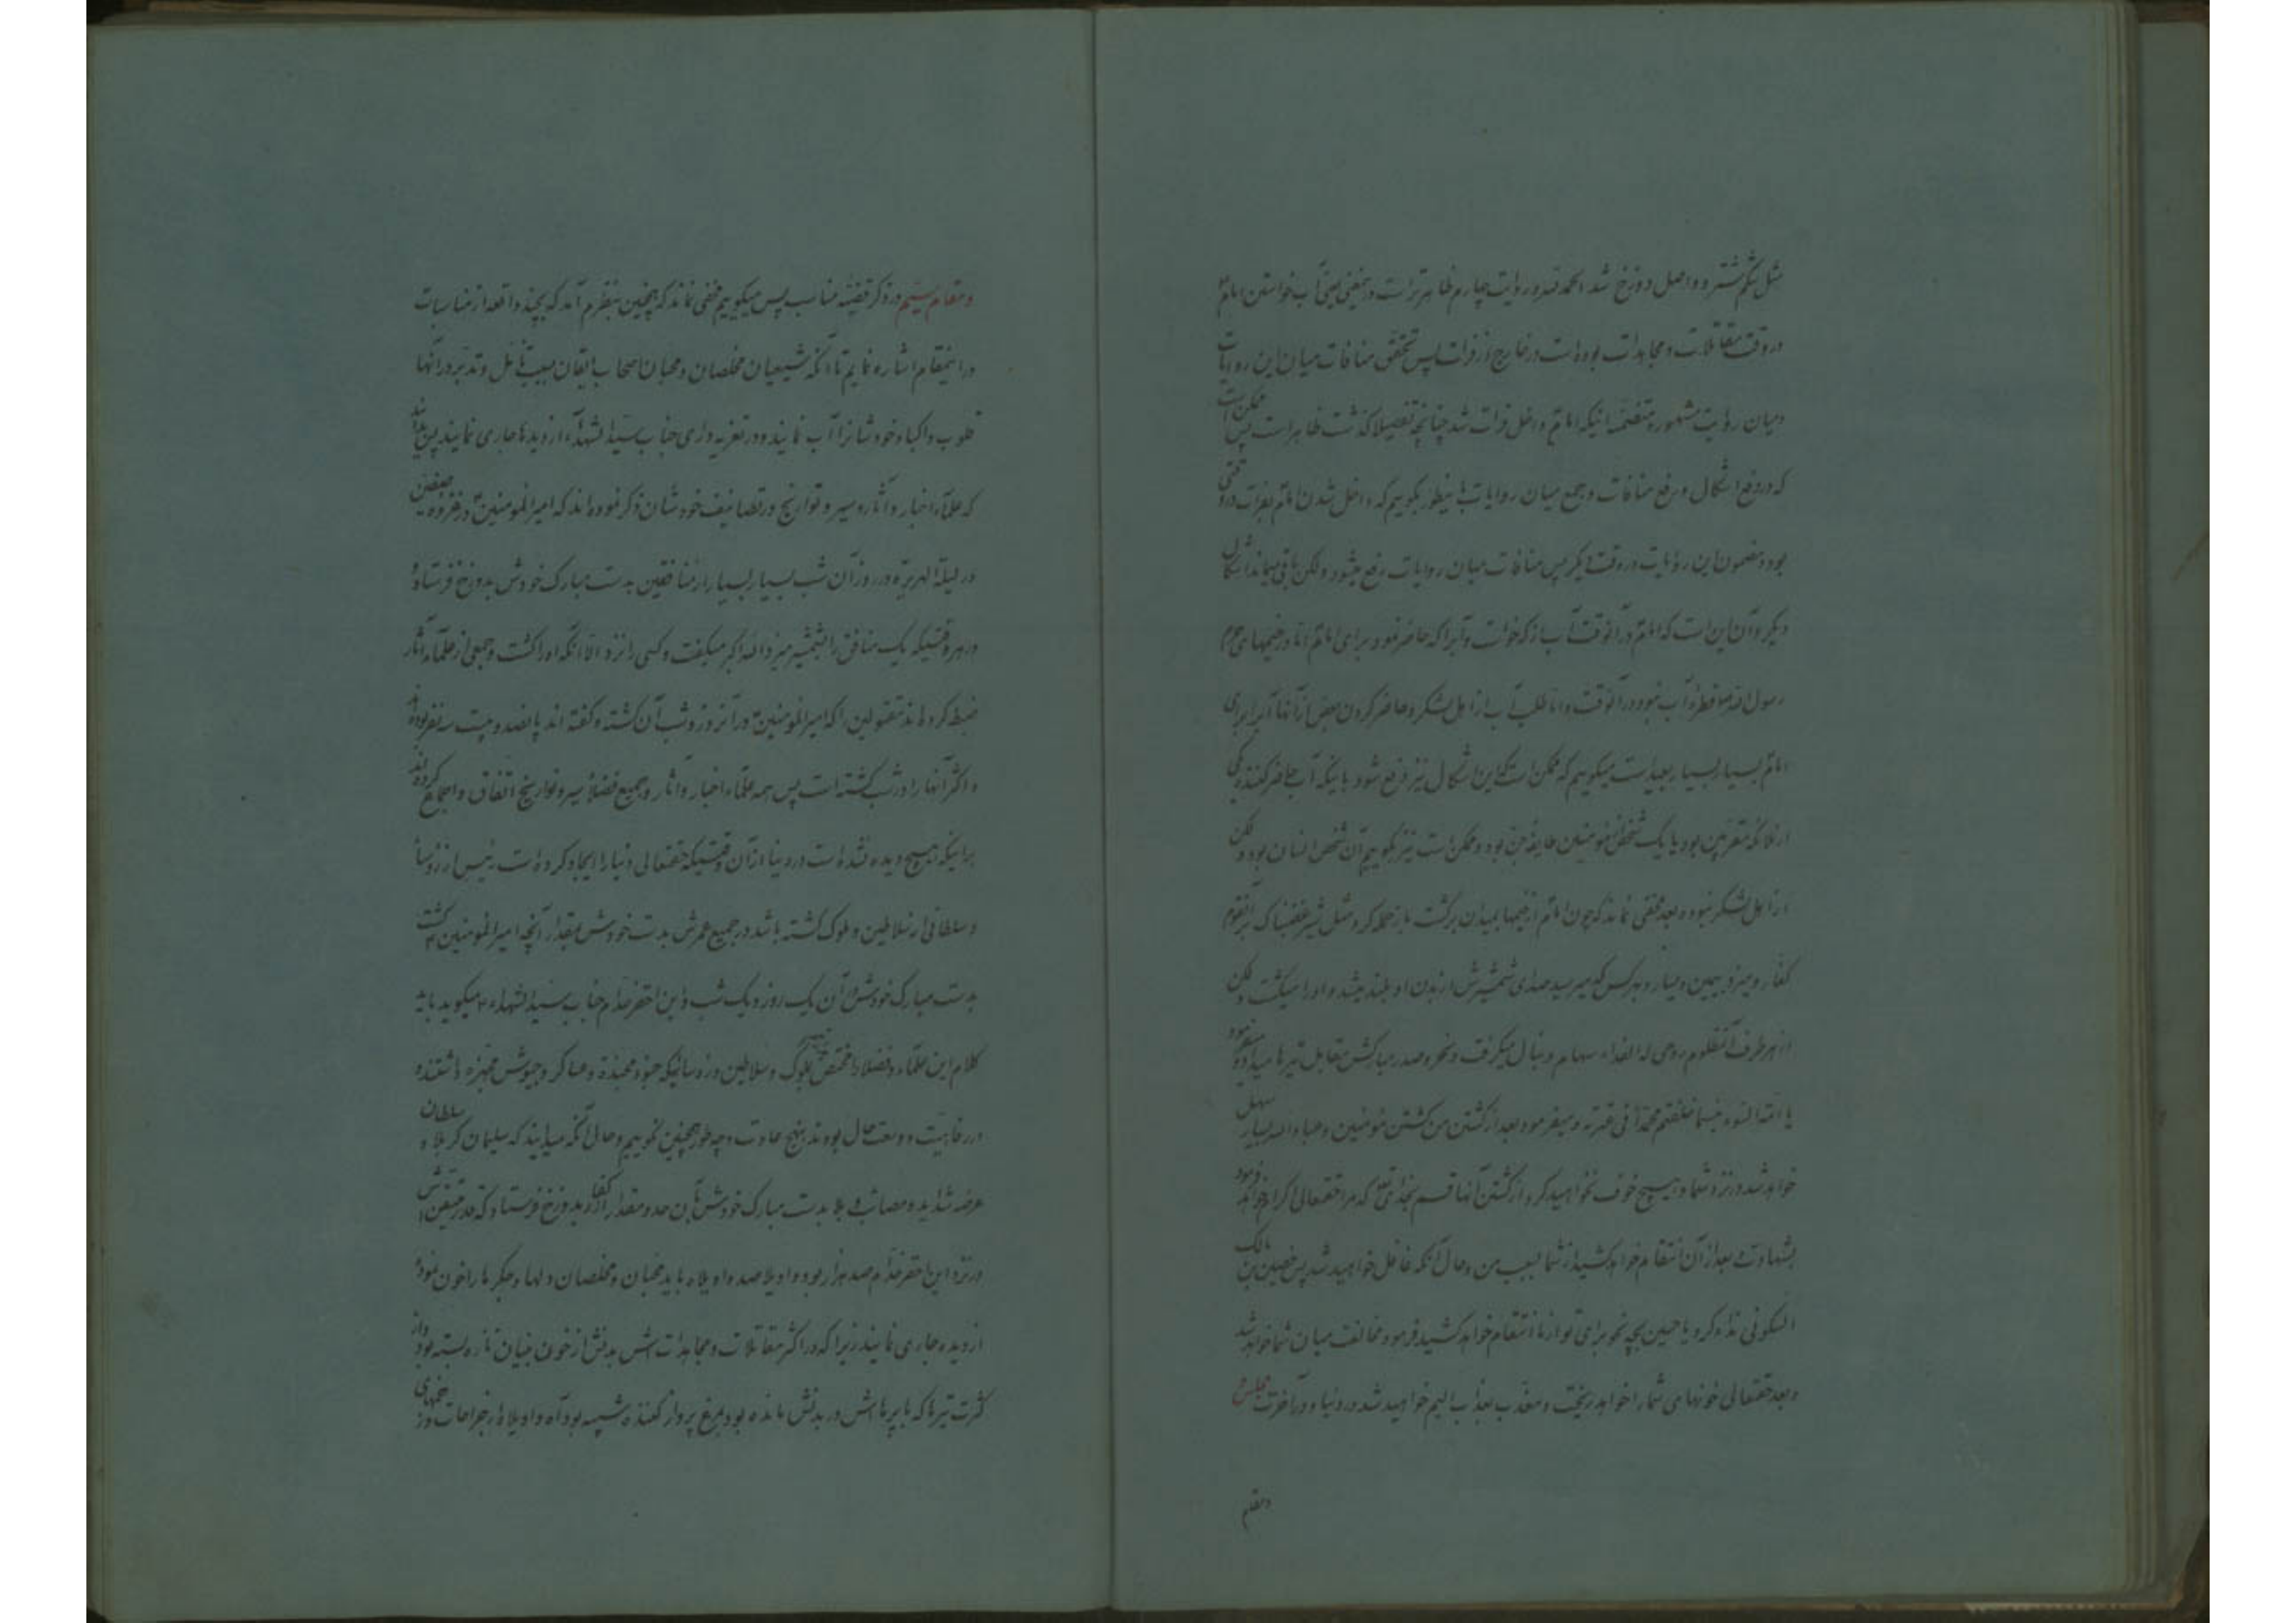 مثل شکم شتر و واصل دوزخ شد الحمد لله و روایت چهارم ظاهرتر است در اینمعنی یعنی آب خواستن امام ع
در وقت مقاتلات و مجاهدات بوده است در خارج از فرات پس تحقق منافات میان این روایات
و میان روایت مشهوره متضمنه اینکه امام داخل فرات شد چنانچه تفصیلا گذشت ظاهر است پس ممکن است
که در رفع اشکال و رفع منافات و جمع میان روایات باینطور بگوییم که داخل شدن امام بفرات در وقتی
بود و مضمون این روایات در وقت دیگر پس منافات میان روایات رفع میشود ولکن باقی میماند اشکال
دیگر و آن این است که امام در آنوقت آب از که خواست و آنرا که حاضر نمود برای امام اما در خیمهای حرم
رسول الله ص قطره آب نبود در آنوقت و اما طلب آب از اهل لشکر و حاضر کردن بعض از آنها آنرا برای
امام بسیار بسیار بعید است میگوییم که ممکن است که این اشکال نیز رفع شود باینکه آب حاضر کننده یکی
از ملائکه مقربین بود یا یک شخص از مؤمنین طایفه جن بود و ممکن است نیز بگوییم آن شخص انسان بود ولکن
از اهل لشکر نبوده بعد مخفی نماند که چون امام از خیمها بمیدان برگشت باز حمله کرد مثل شیر غضبناک بر آنقوم
کفار و میزد بیمین و یسار و بهر کس که میرسید صدای شمشیرش از بدن او بلند میشد و او را میکشت ولکن
از هر طرف آنمظلوم روحی له الفداء سهام و نبال میگرفت و نحر و صدر مبارکش مقابل تیرها میداد و میفرمود
یا امة السوء بئسما خلفتم محمدا فی عترته و میفرمود بعد از کشتن من کشتن مؤمنین و عباد الله بسیار سهل
خواهد شد در نزد شما و هیچ خوف نخواهید کرد از کشتن آنها قسم بخدای که مرا حقتعالی اکرام خواهد فرمود
بشهادت و بعد از آن انتقام خواهد کشید از شما بسبب من و حال آنکه غافل خواهید شد پس حصین بن مالک
السکونی نداء کرد یا حسین بچه نحو برای تو از ما انتقام خواهد کشید فرمود مخالفت میان شما خواهد شد
و بعد حقتعالی خونهای شما را خواهد ریخت و معذب بعذاب الیم خواهید شد در دنیا و در آخرت مجلس
و مقام
و مقام سیم در ذکر قضیه مناسب پس میگوییم مخفی نماند که چنین بنظرم آمد که بچند واقعه از مناسبات
در اینمقام اشاره نمایم تا آنکه شیعیان مخلصان و محبان اصحاب ایقان بسبب تأمل و تدبر در آنها
قلوب و اکباد خودشانرا آب نمایند و در تعزیه داری جناب سید الشهداء از دیدها جاری نمایند پس بدانند
که علماء اخبار و آثار و سیر و تواریخ در تصانیف خودشان ذکر نموده اند که امیر المومنین ع در غزوه صفین
در لیلة الهریر و در روز آن شب بسیار بسیار از منافقین بدست مبارک خودش بدوزخ فرستاده
در هر وقتیکه یک منافق را بشمشیر میزد الله اکبر میگفت و کسی را نزد الا آنکه او را کشت و جمعی از علماء آثار
ضبط کرده اند مقتولین را که امیر المومنین ع در آنروز و شب آن کشته و گفته اند پانصد و بیست سه نفر بوده اند
و اکثر آنها را در شب کشته است پس همه علماء اخبار و آثار و جمیع فضلاء سیر و تواریخ اتفاق و اجماع کرده اند
بر اینکه هیچ دیده نشده است در دنیا از آن وقتیکه حقتعالی دنیا را ایجاد کرده است رئیس از رؤسا
و سلطانی از سلاطین و ملوک کشته باشد در جمیع عمرش بدست خودش بمقدار آنچه امیر المومنین ع کشت
بدست مبارک خودش در آن یک روز و یک شب و این احقر خدام جناب سید الشهداء ع میگوید باید
کلام این علماء و فضلا را مختص بملوک و سلاطین و رؤسائیکه جنود مجنده و عساکر و جیوش مجهزه داشتند
در رفاهیت و وسعت حال بودند بنهج عادت و چطور چنین نگوییم و حال آنکه میدانید که سلیمان کربلا و سلطان
عرصه شداید و مصائب و بلا بدست مبارک خودش بآن حد و مقدار از کفار بدوزخ فرستاد که عدد مقتولین
در نزد این احقر خدام صد هزار بود واویلا صد واویلاه باید محبان و مخلصان دلها و جگرها را خون نموده
از دیده جاری نمایند زیرا که در اکثر مقاتلات و مجاهدات اش بدنش از خون بنیان تازه بسته بود و از
کثرت تیرها که با پرهایش در بدنش مانده بود بمرغ پرواز کننده شبیه بود آه واویلا از جراحات و زخمهای